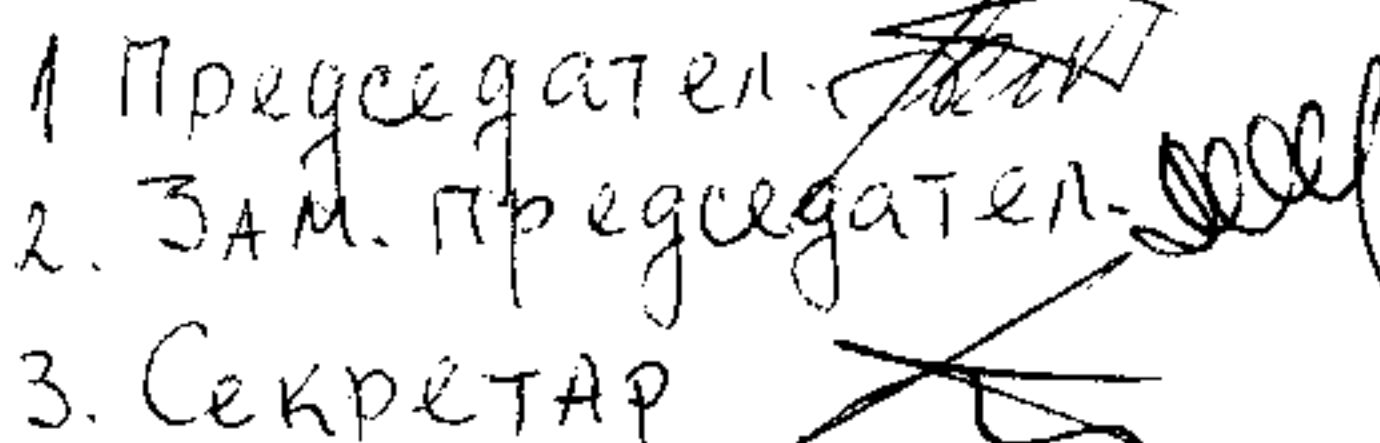 1 Председател.
2. Зам. председател.
3. Секретар